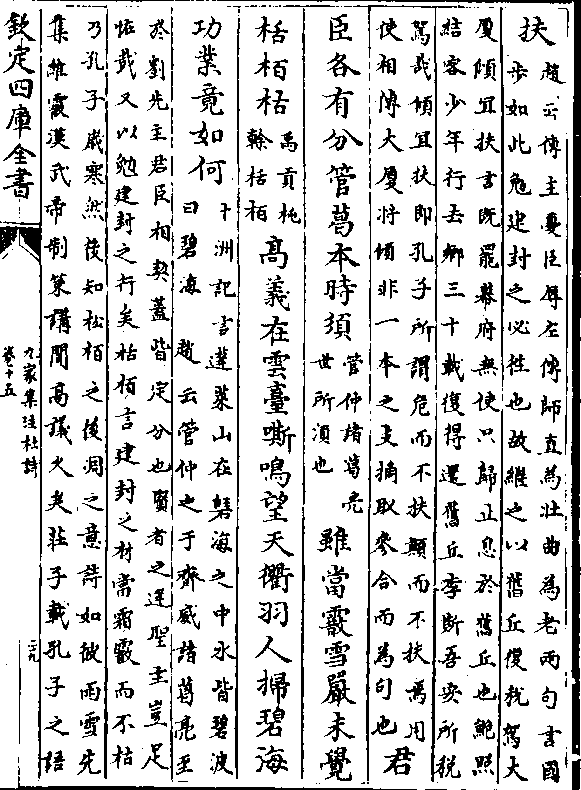 扶趙云傳主憂臣辱左傳師直為壯曲為老兩句言國
步如此勉建封之必往也故繼之以舊丘復稅駕大
厦傾宜扶言既罷幕府無使只歸止息於舊丘也鮑照
結客少年行去鄉三十載復得還舊丘李斯吾奚所稅
駕哉傾宜扶即孔子所謂危而不扶顛而不扶焉用
使相傳大厦將傾非一本之支摘取參合而為句也君
臣各有分管葛本時須管仲諸葛亮世所須也雖當霰雪嚴未覺
栝栢枯禹貢杶榦栝栢高義在雲臺嘶鳴望天衢羽人掃碧海
功業竟如何十洲記言蓬萊山在碧海之中水皆碧波
曰碧海 趙云管仲之于齊威諸葛亮至
於劉先主君臣相契蓋皆定分也賢者之逢聖主豈足
怪哉又以勉建封之行矣枯栢言建封之材當霜霰而不枯
乃孔子歲寒然後知松栢之後凋之意詩如彼雨雪先
集維霰漢武帝制策講聞高議久矣莊子載孔子之語
欽定四庫全書
九家集注杜詩
卷十五
二九